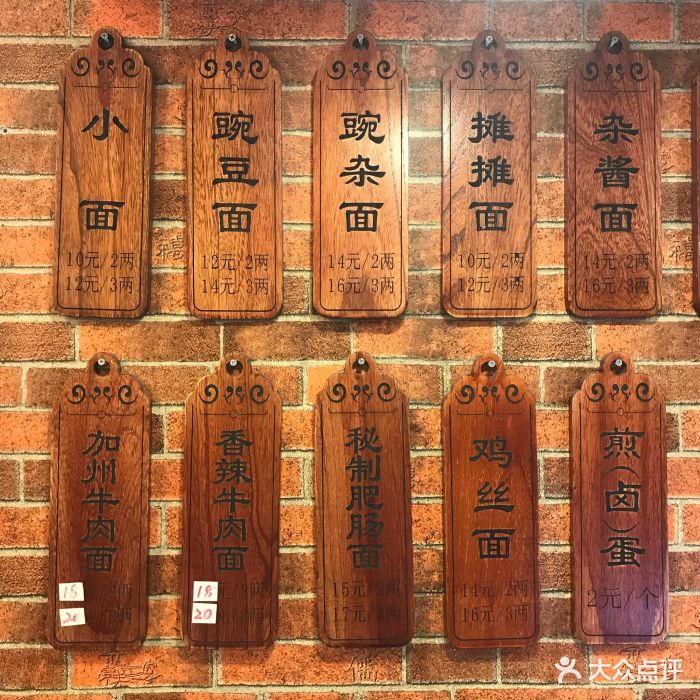 小面
10元/2两
12元/3两
豌豆面
12元/2两
14元/3两
豌杂面
14元/2两
16元/3两
摊摊面
10元/2两
12元/3两
杂酱面
14元/2两
16元/3两
加州牛肉面
18 /2两
20 /3两
香辣牛肉面
18元/2两
20元/3两
秘制肥肠面
15元/2两
17元/3两
鸡丝面
14元/2两
16元/3两
煎(卤)蛋
2元/个
禧
儒
大众点评